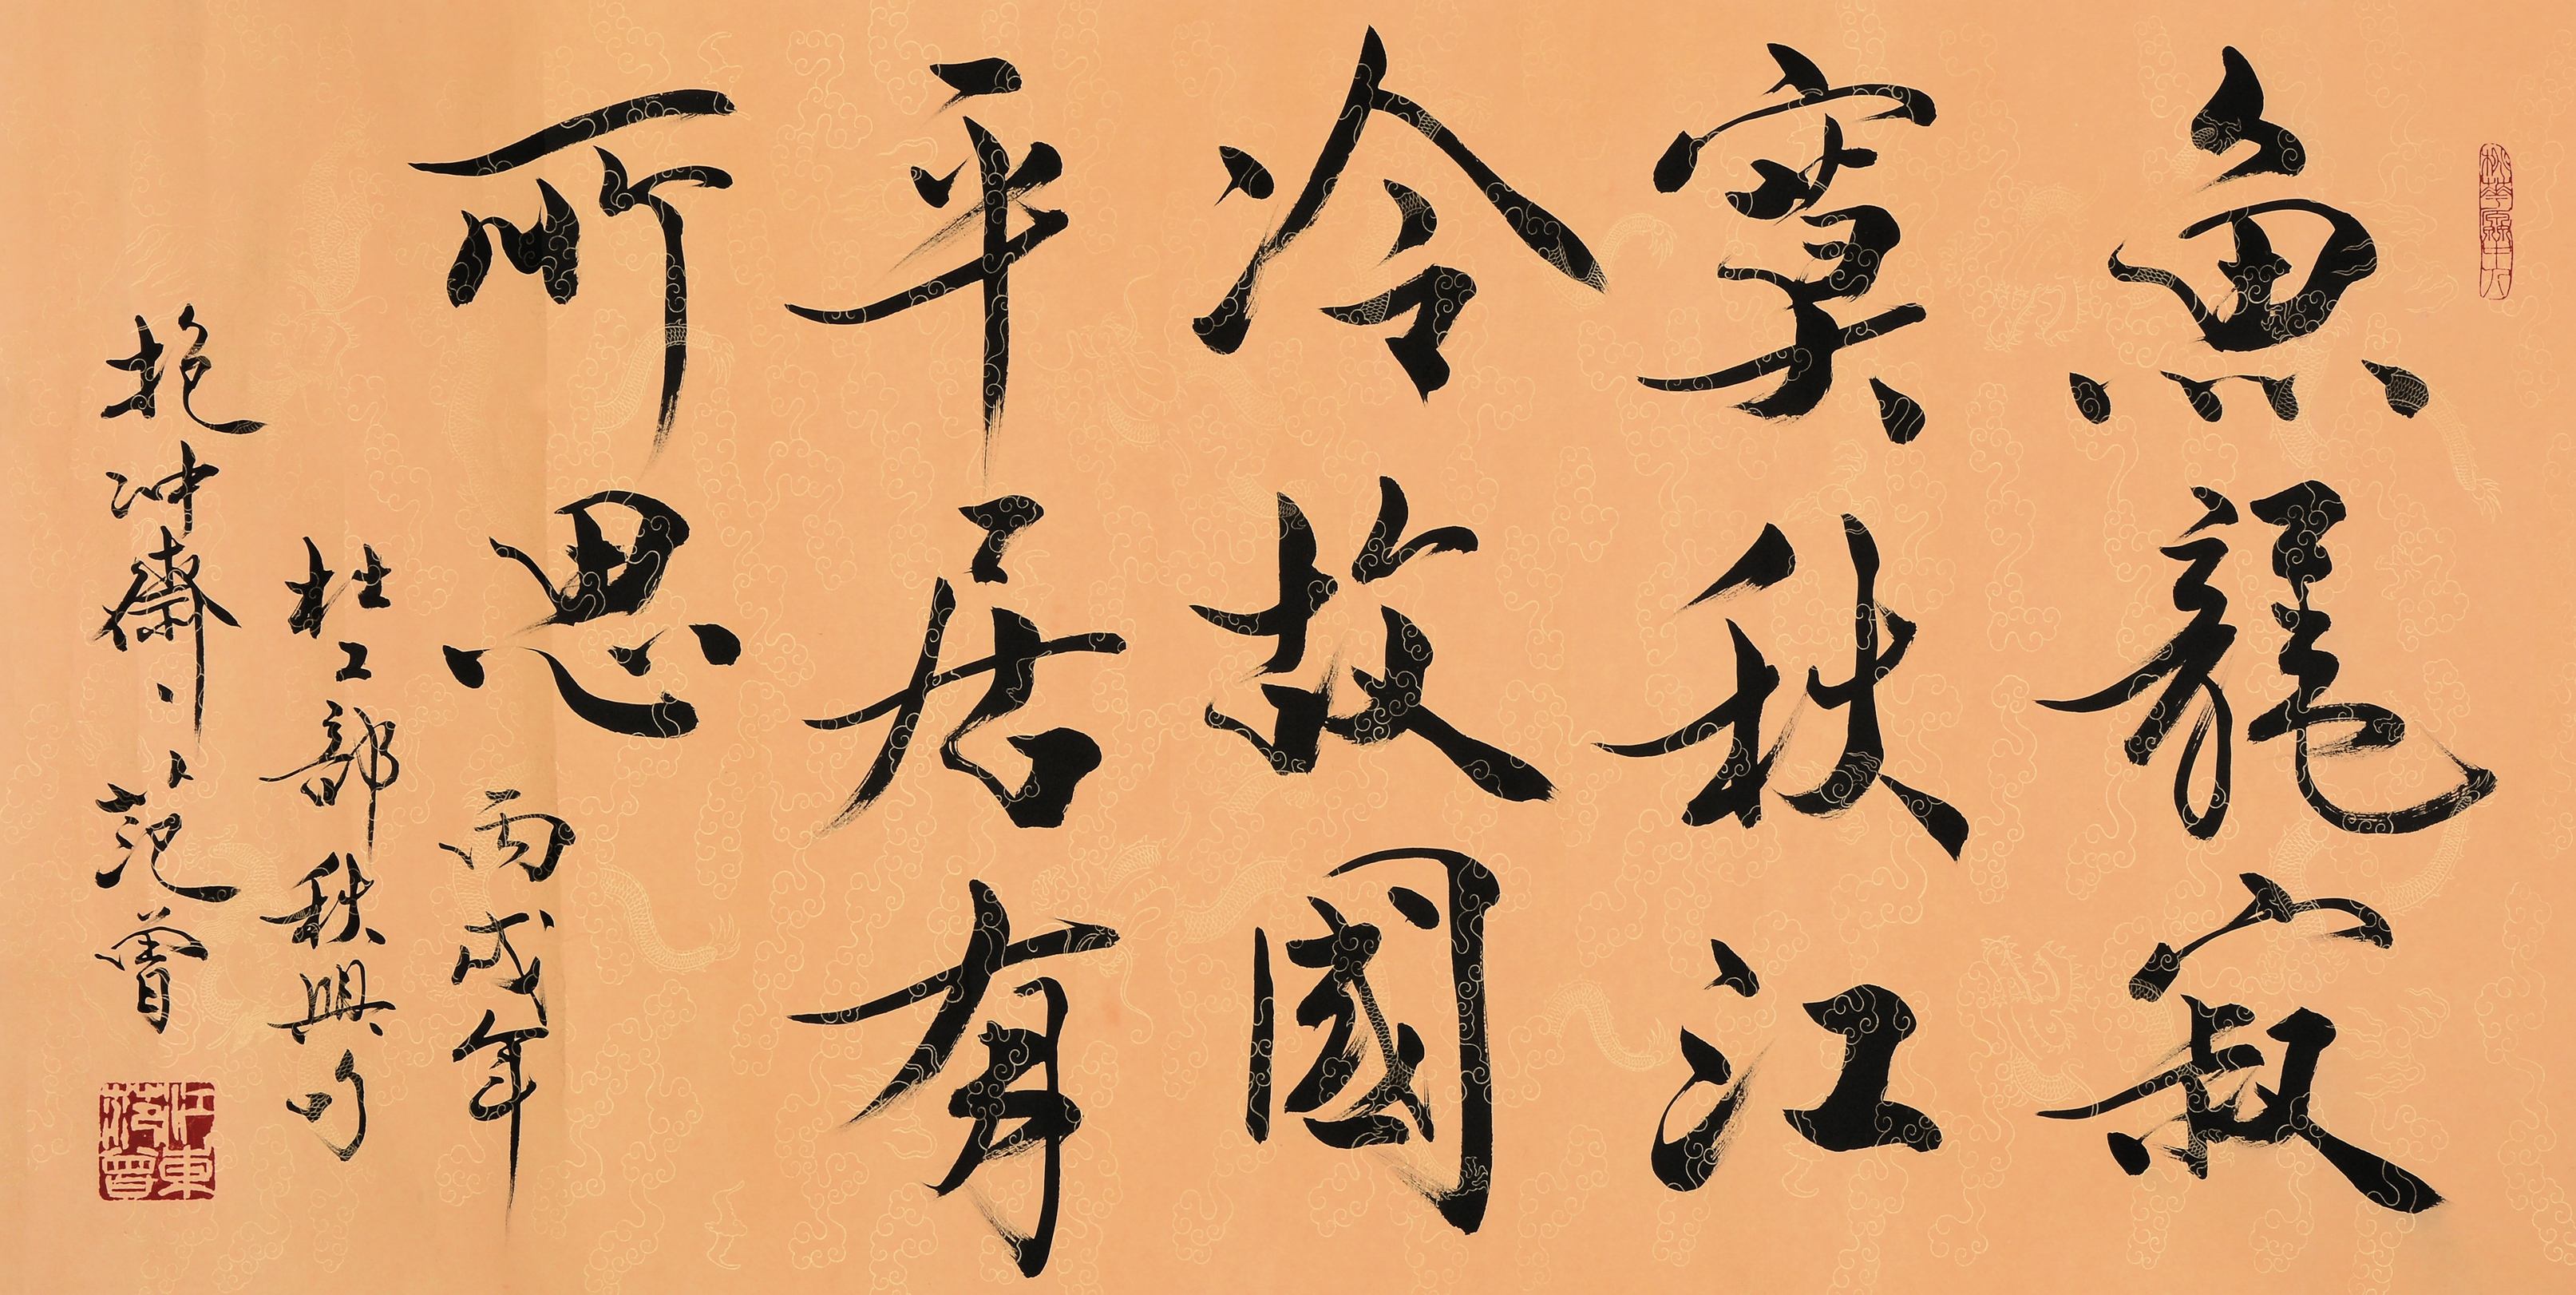 魚龍寂
寞秋江
冷故國
平居有
所思
丙戌年
杜工部秋興句
抱冲齋十翼范曾
江東范曾